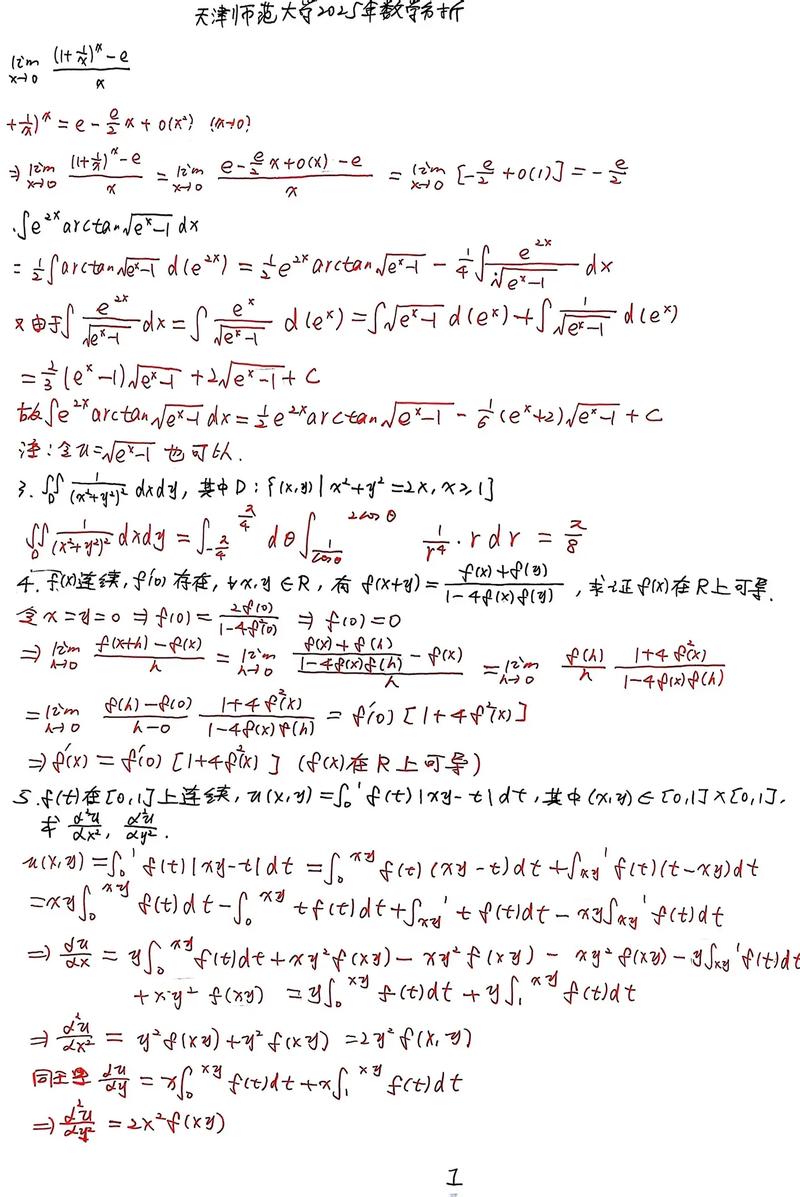 天津师范大学2025年数学分析
lim_{x→0} ((1+1/x)^x - e)/x
+1/x)^x = e - e/2 x + o(x²) (x→0)
⇒ lim_{x→0} ((1+1/x)^x - e)/x = lim_{x→0} (e - e/2 x + o(x) - e)/x = lim_{x→0} [-e/2 + o(1)] = -e/2
.∫e^{2x} arctan√(e^x-1) dx
= 1/2 ∫arctan√(e^x-1) d(e^{2x}) = 1/2 e^{2x} arctan√(e^x-1) - 1/4 ∫ e^{2x}/√(e^x-1) dx
又由于∫ e^{2x}/√(e^x-1) dx = ∫ e^x/√(e^x-1) d(e^x) = ∫√(e^x-1) d(e^x) + ∫ 1/√(e^x-1) d(e^x)
= 2/3 (e^x-1)√(e^x-1) + 2√(e^x-1) + C
故∫e^{2x} arctan√(e^x-1) dx = 1/2 e^{2x} arctan√(e^x-1) - 1/6 (e^x+2)√(e^x-1) + C
注:令u=√(e^x-1) 也可以.
3. ∬_D 1/(x²+y²)² dxdy, 其中D:{(x,y)|x²+y²=2x, x≥1]
∬_D 1/(x²+y²)² dxdy = ∫_{-π/4}^{π/4} dθ ∫_{1/cosθ}^{2cosθ} 1/r⁴ · r dr = π/8
4. f(x)连续, f'(0)存在, ∀x,y∈R, 有 f(x+y) = (f(x)+f(y))/(1-4f(x)f(y)), 求证f(x)在R上可导.
令x=y=0 ⇒ f(0) = 2f(0)/(1-4f²(0)) ⇒ f(0)=0
⇒ lim_{h→0} (f(x+h)-f(x))/h = lim_{h→0} ((f(x)+f(h))/(1-4f(x)f(h)) - f(x))/h = lim_{h→0} f(h)/h (1+4f²(x))/(1-4f(x)f(h))
= lim_{h→0} (f(h)-f(0))/(h-0) (1+4f²(x))/(1-4f(x)f(h)) = f'(0)[1+4f²(x)]
⇒ f'(x) = f'(0)[1+4f²(x)] (f(x)在R上可导)
5. f(t)在[0,1]上连续, u(x,y)=∫_0^1 f(t)|xy-t|dt, 其中(x,y)∈[0,1]×[0,1],
求 d²u/dx², d²u/dy².
u(x,y)=∫_0^1 f(t)|xy-t|dt = ∫_0^{xy} f(t)(xy-t)dt + ∫_{xy}^1 f(t)(t-xy)dt
=xy∫_0^{xy} f(t)dt - ∫_0^{xy} tf(t)dt + ∫_{xy}^1 tf(t)dt - xy∫_{xy}^1 f(t)dt
⇒ du/dx = y∫_0^{xy} f(t)dt + xy²f(xy) - xy²f(xy) - xy²f(xy) - y∫_{xy}^1 f(t)dt
+x·y² f(xy) = y∫_0^{xy} f(t)dt + y∫_1^{xy} f(t)dt
⇒ d²u/dx² = y²f(xy) + y²f(xy) = 2y²f(x,y)
同理 du/dy = x∫_0^{xy} f(t)dt + x∫_1^{xy} f(t)dt
⇒ d²u/dy² = 2x²f(xy)
1